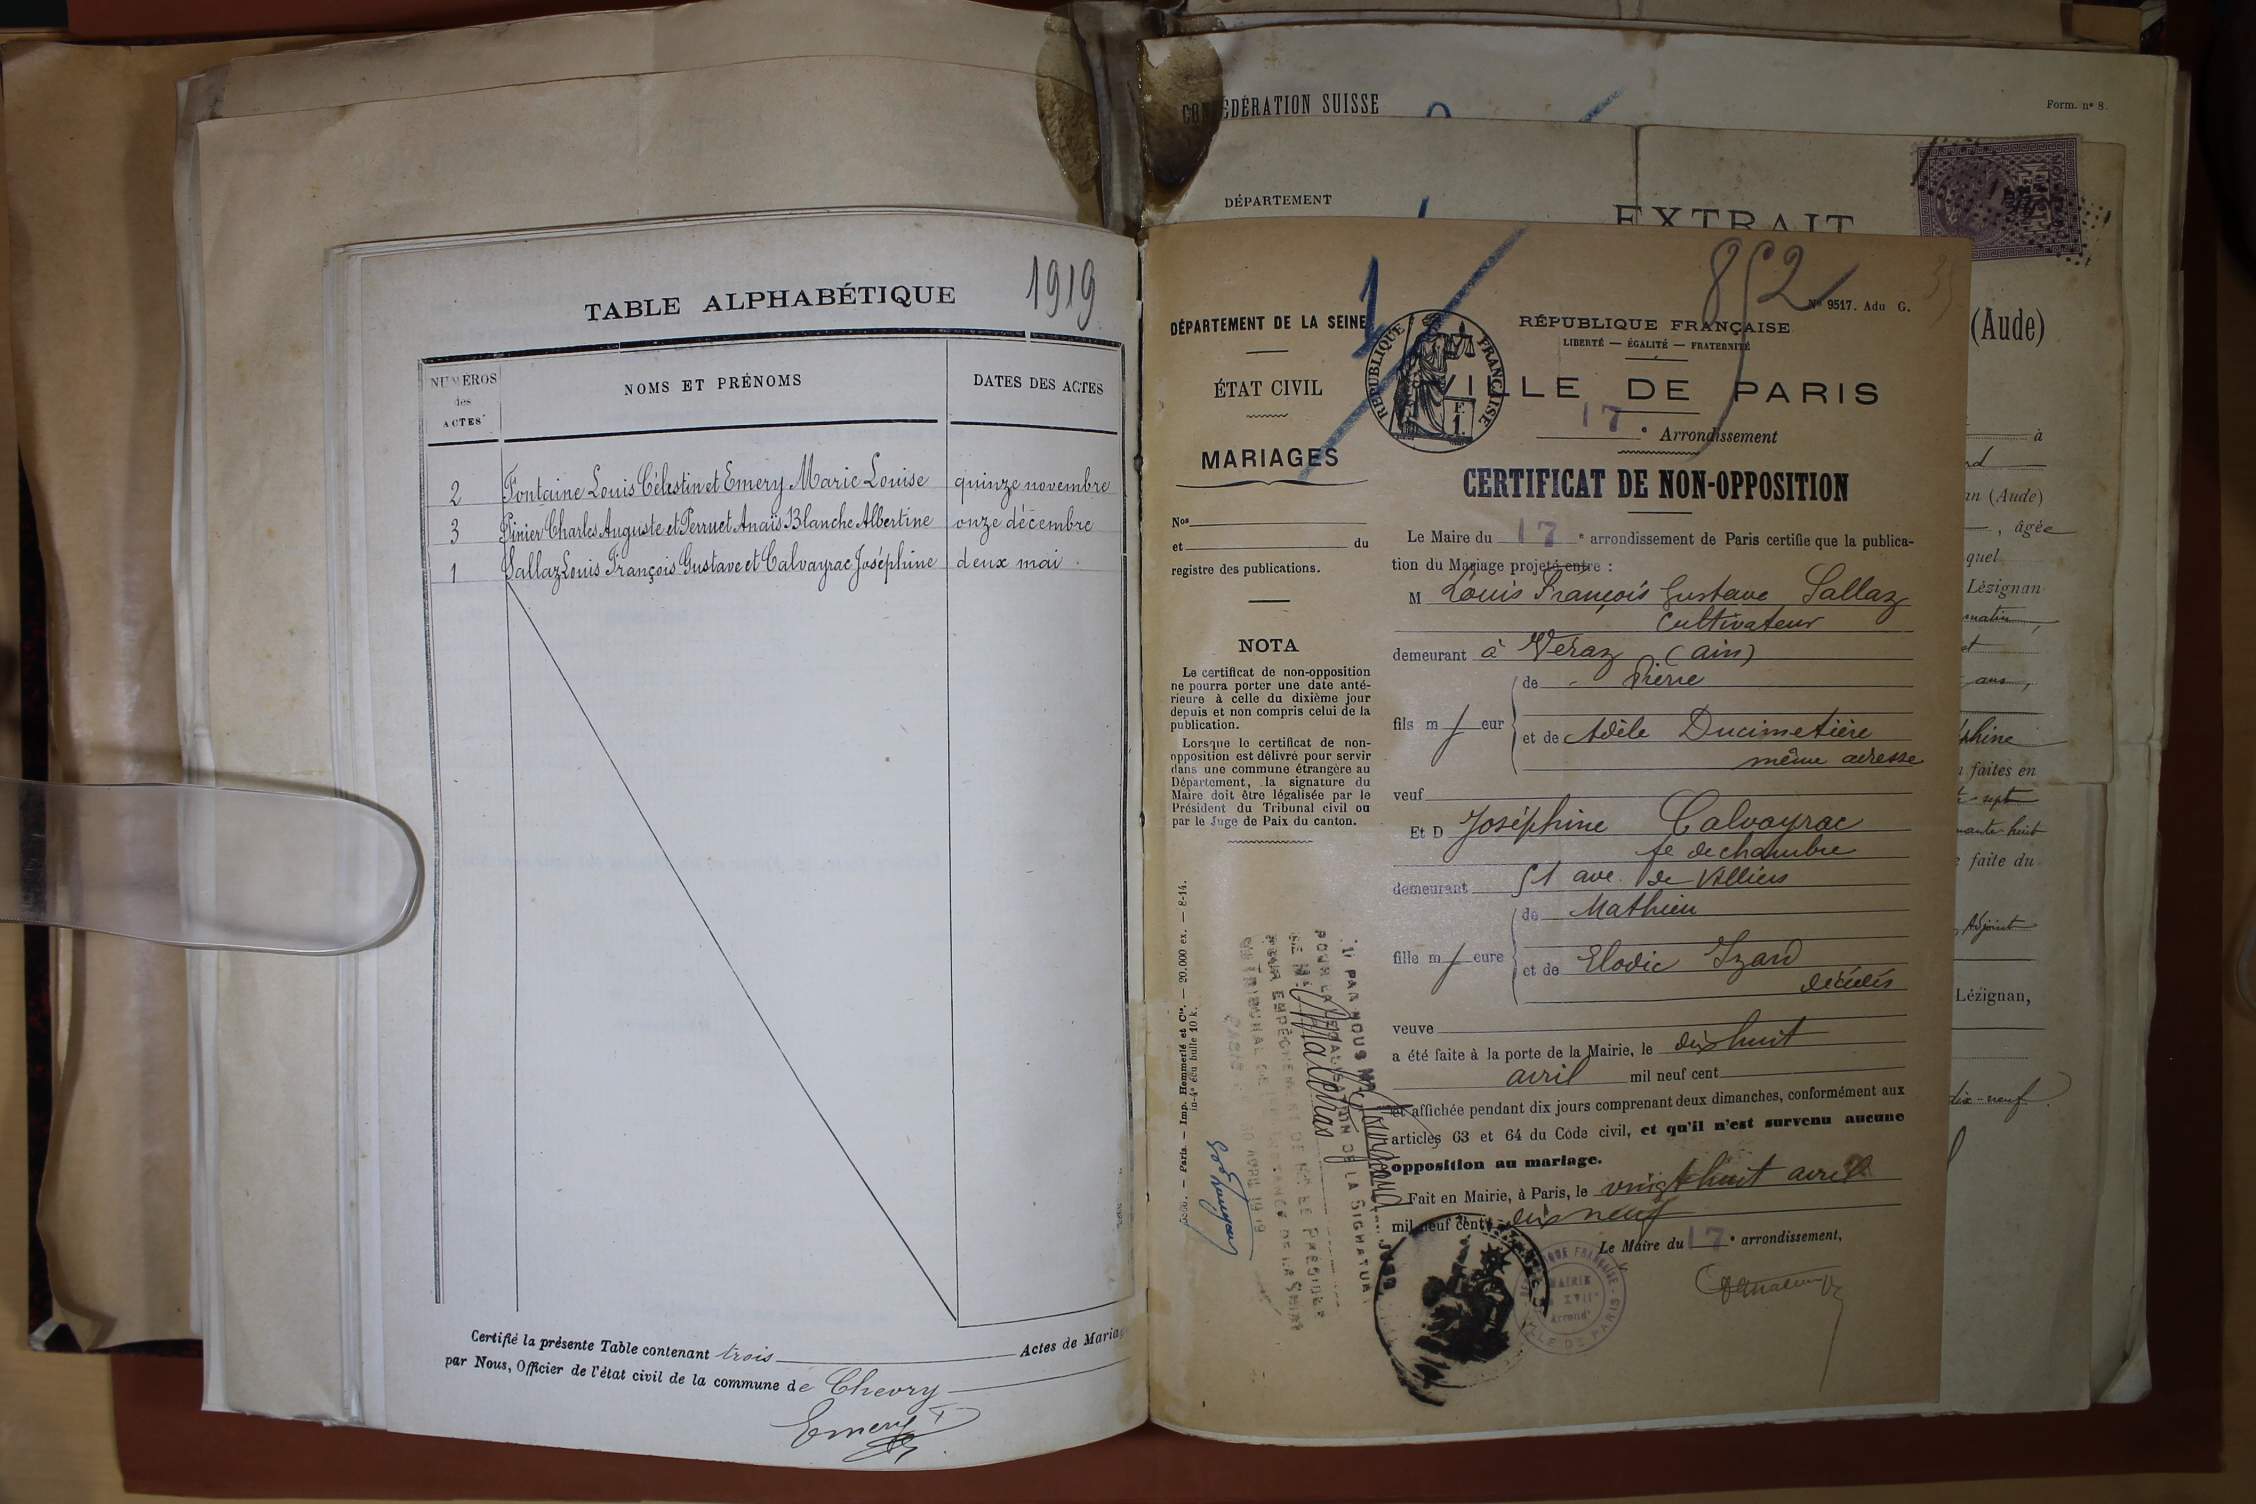 TABLE ALPHABÉTIQUE 1919
NUMÉROS
des
ACTES
NOMS ET PRÉNOMS
DATES DES ACTES
2 Fontaine Louis Célestin et Emery Marie Louise quinze novembre
3 Pinier Charles Auguste et Perruet Anaïs Blanche Albertine onze décembre
1 Sallaz Louis François Gustave et Calvayrac Joséphine deux mai
Certifié la présente Table contenant trois Actes de Maria
par Nous, Officier de l'état civil de la commune de Chevry
Emery
CONFÉDÉRATION SUISSE
Form. nº 8.
DÉPARTEMENT
EXTRAIT
(Aude)
à
an (Aude)
, âgée
quel
Lézignan
matin,
et
ans,
phine
faites en
sept
ante-huit
faite du
Adjoint
Lézignan,
dix-neuf
1
852
Nº 9517. Adu G.
DÉPARTEMENT DE LA SEINE
ÉTAT CIVIL
MARIAGES
Nos
et du
registre des publications.
NOTA
Le certificat de non-opposition
ne pourra porter une date anté-
rieure à celle du dixième jour
depuis et non compris celui de la
publication.
Lorsque le certificat de non-
opposition est délivré pour servir
dans une commune étrangère au
Département, la signature du
Maire doit être légalisée par le
Président du Tribunal civil ou
par le Juge de Paix du canton.
Paris. — Imp. Hemmerlé et Cie. — 20.000 ex. — 8-14.
in-4º écu bulle 10 k.
RÉPUBLIQUE FRANÇAISE
RÉPUBLIQUE FRANÇAISE
LIBERTÉ — ÉGALITÉ — FRATERNITÉ
VILLE DE PARIS
17e Arrondissement
CERTIFICAT DE NON-OPPOSITION
Le Maire du 17e arrondissement de Paris certifie que la publica-
tion du Mariage projeté entre :
M Louis François Gustave Sallaz
Cultivateur
demeurant à Véraz (ain)
de Pierre
fils m eur
et de Adèle Ducimetière
même adresse
veuf
Et D Joséphine Calvayrac
fe de chambre
demeurant 51 ave. de Villiers
de Mathieu
fille m eure
et de Elodie Izard
décédés
veuve
a été faite à la porte de la Mairie, le dix huit
avril mil neuf cent
et affichée pendant dix jours comprenant deux dimanches, conformément aux
articles 63 et 64 du Code civil, et qu'il n'est survenu aucune
opposition au mariage.
Fait en Mairie, à Paris, le vingt huit avril
mil neuf cent dix neuf
Le Maire du 17e arrondissement,
MAIRIE
XVIIe
Arrondt
VILLE DE PARIS
PAR NOUS
POUR LA LÉGALISATION DE LA SIGNATURE
DE M. Malorras
POUR EMPÊCHEMENT DE Mr LE PRÉSIDENT
DU TRIBUNAL DE LA SEINE
PARIS 30 AVRIL 1919